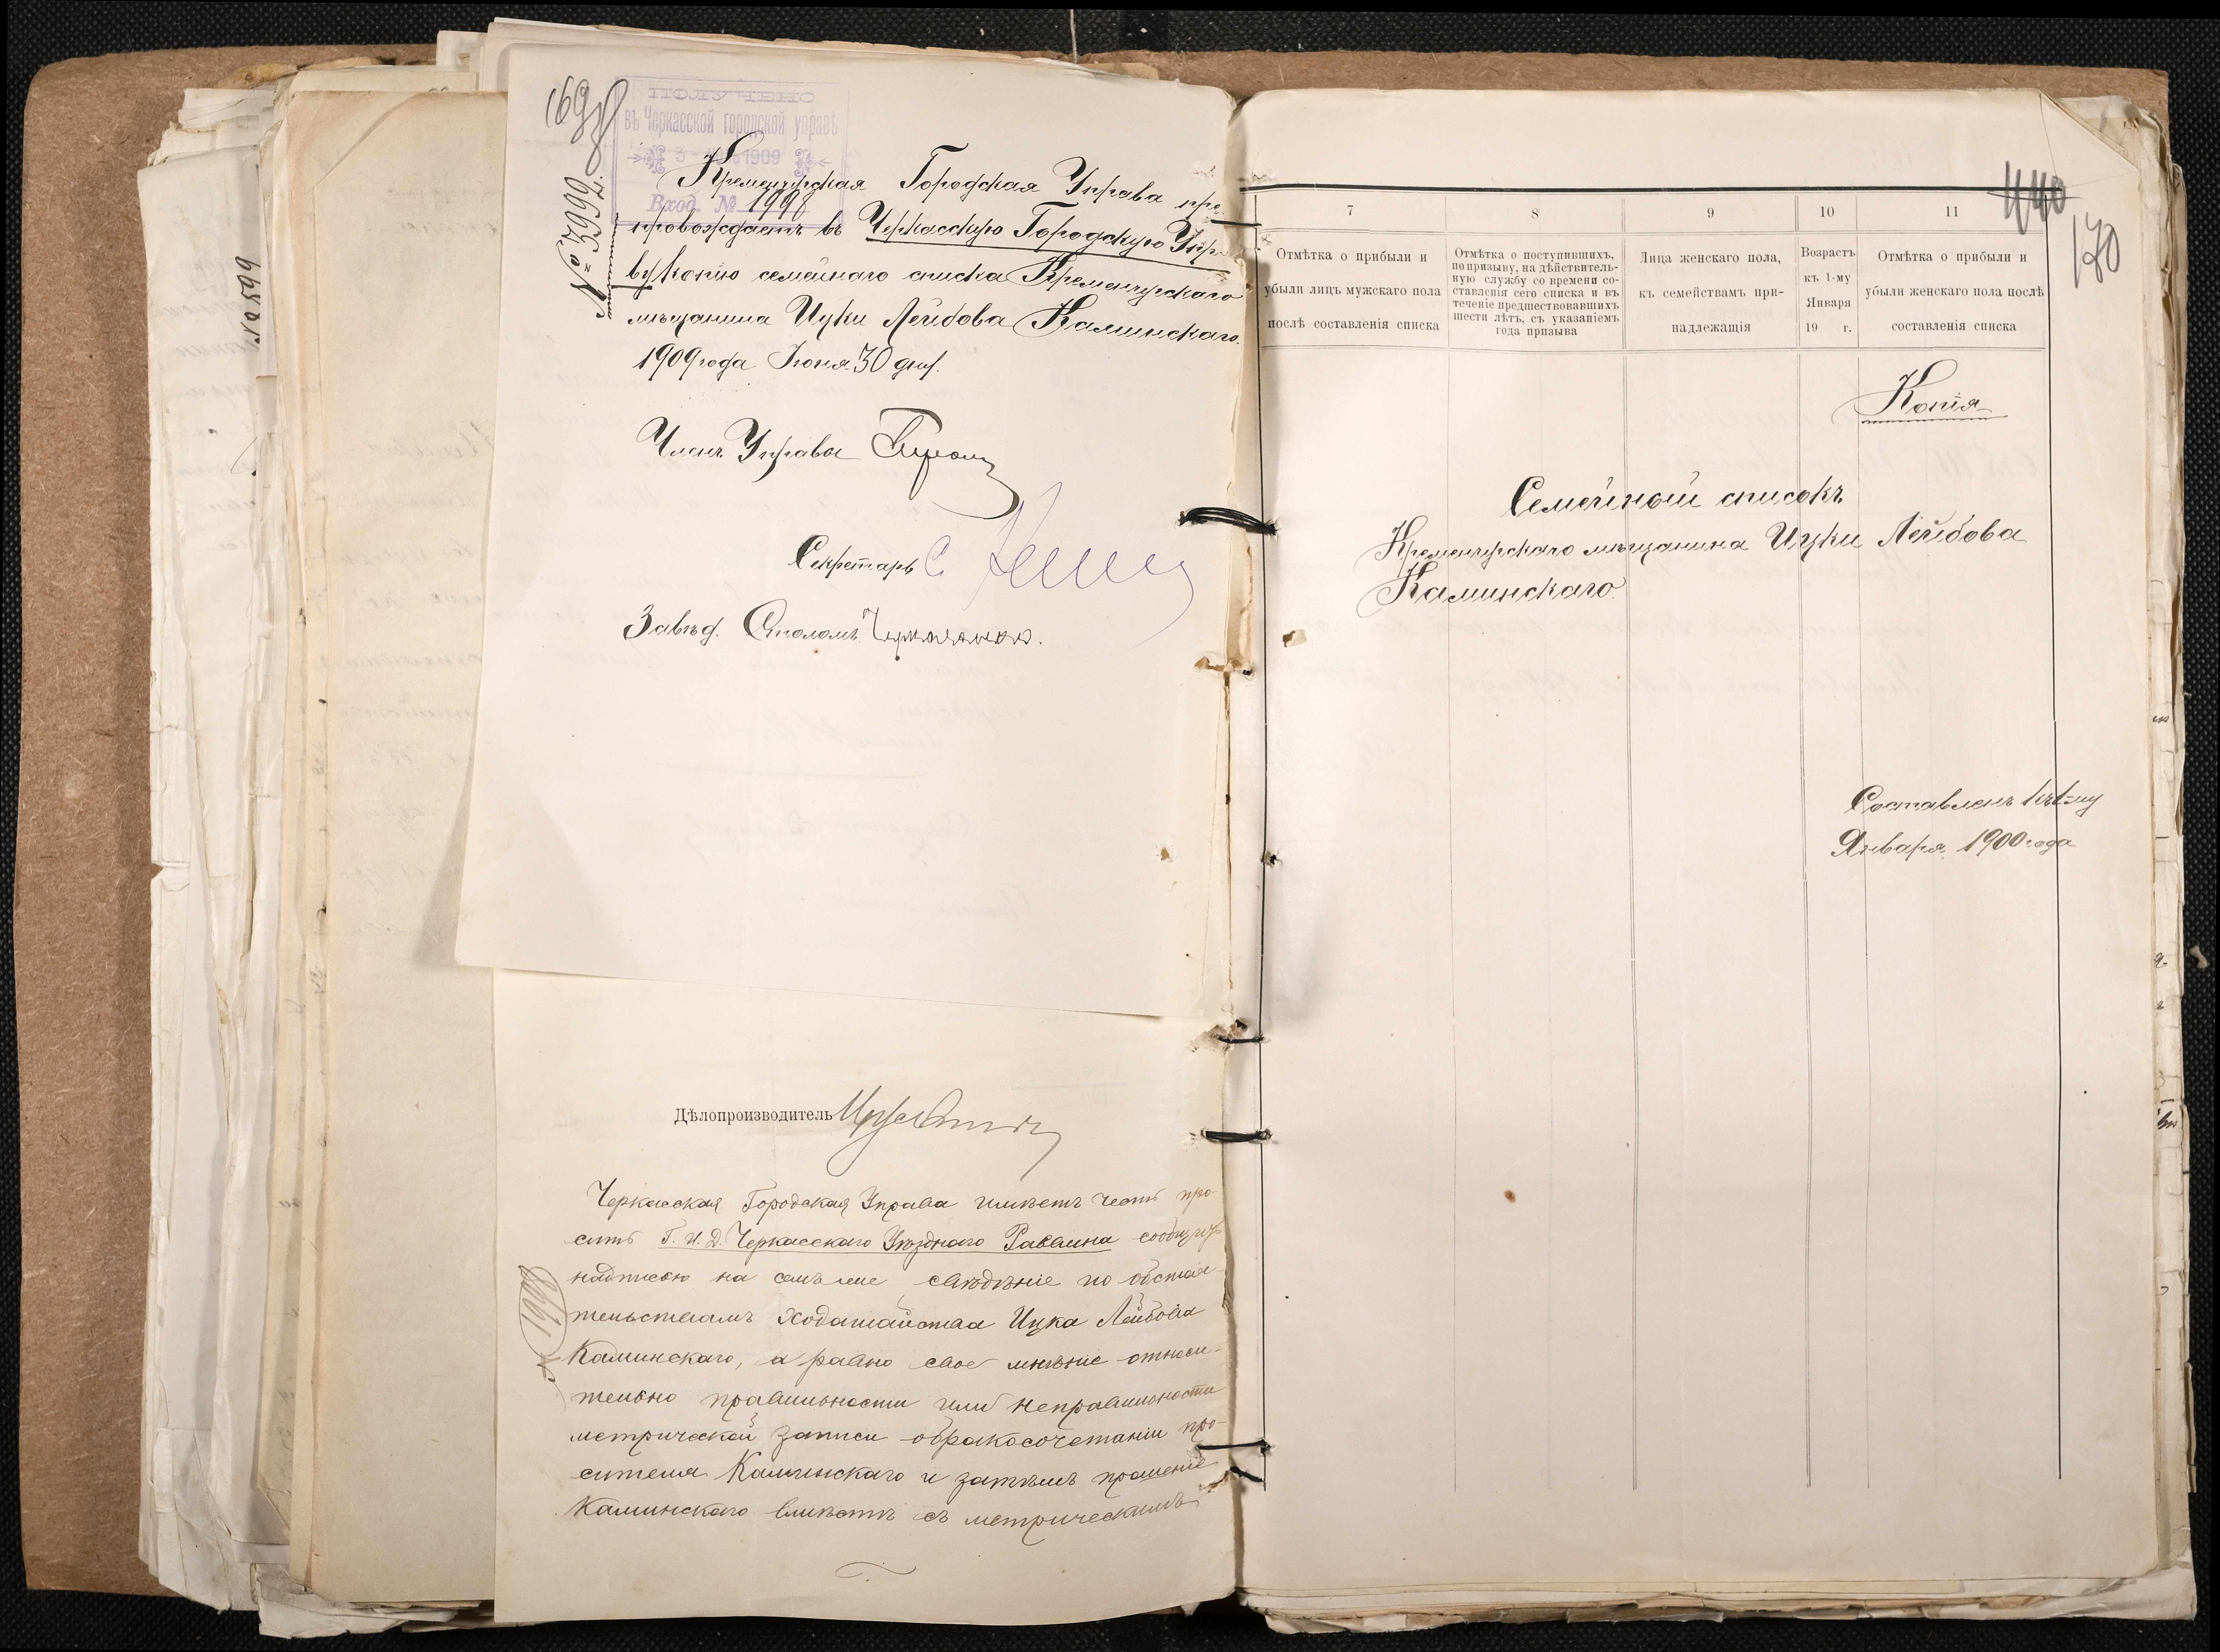 169
ПОЛУЧЕНО
въ Черкасской городской управѣ
1909
Вход. № 1998
№ 3992.
Кременчугская Городская Управа пре-
провождаетъ въ Черкасскую Городскую Упра-
ву копію семейнаго списка Кременчугскаго
мѣщанина Ицки Лейбова Каминскаго.
1909 года Іюня 30 дня.
Членъ Управы
Секретарь
Завѣд. Столомъ
№ 599
Дѣлопроизводитель
Черкасская Городская Управа имѣетъ честь про-
сить Г. И. Д. Черкасскаго Уѣзднаго Раввина сообщить
надписью на семъ же свѣдѣніе по обстоя-
тельствамъ ходатайства Ицка Лейбова
Каминскаго, а равно свое мнѣніе относи-
тельно правильности или неправильности
метрической записи о бракосочетаніи про-
сителя Каминскаго и затѣмъ прошеніе
Каминскаго вмѣстѣ съ метрическимъ
1998
440
170
7
8
9
10
11
Отмѣтка о прибыли и
убыли лицъ мужскаго пола
послѣ составленія списка
Отмѣтка о поступившихъ,
по призыву, на дѣйствитель-
ную службу со времени со-
ставленія сего списка и въ
теченіе предшествовавшихъ
шести лѣтъ, съ указаніемъ
года призыва
Лица женскаго пола,
къ семействамъ при-
надлежащія
Возрастъ
къ 1-му
Января
19 г.
Отмѣтка о прибыли и
убыли женскаго пола послѣ
составленія списка
Копія
Семейный списокъ
Кременчугскаго мѣщанина Ицки Лейбова
Каминскаго
Составленъ къ 1-му
Января 1900 года